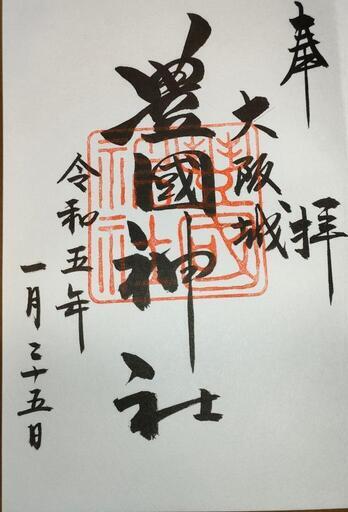 奉拝
大阪城
豊國神社
令和五年
一月二十五日
豊國神社